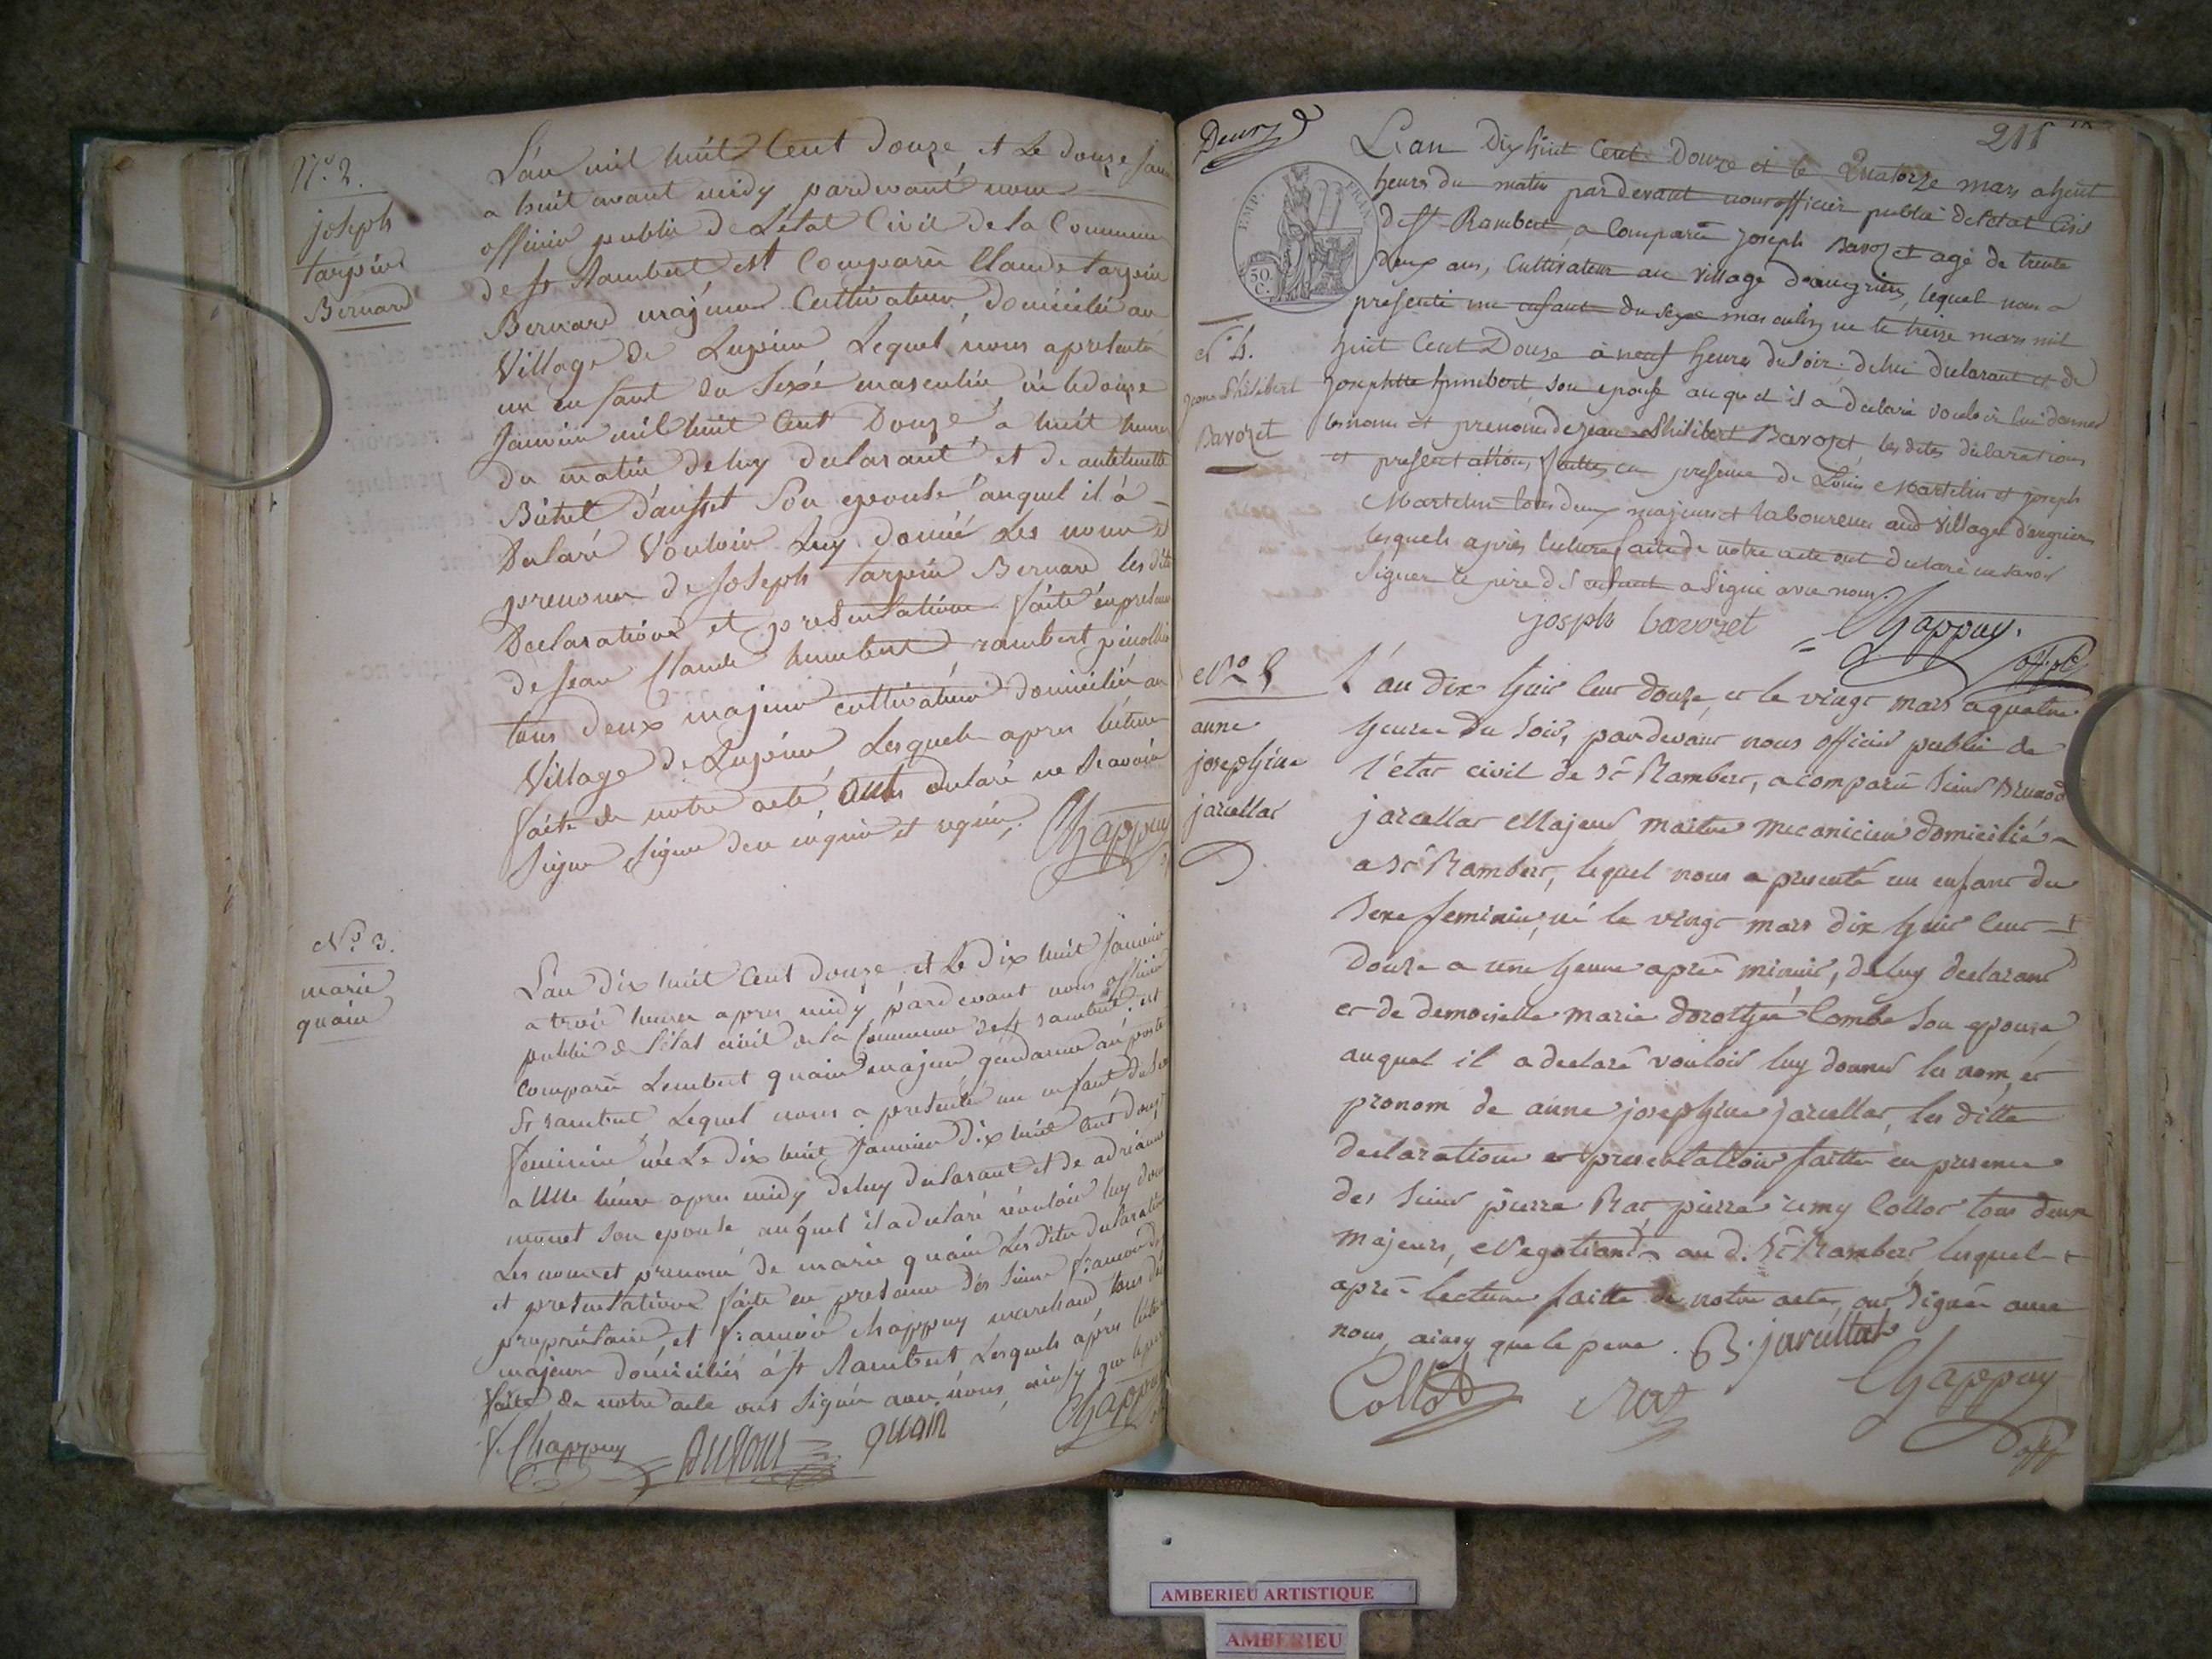 N.o 2.
joseph
tarpin
Bernard
L'an mil huit Cent douze, et Le douze Jan
a huit avant midy pardevant nous
officier public de L'etat Civil de la Commune
de st Rambert est Comparu Claude tarpin
Bernard majeur Cultivateur, domicilié au
Village de Lupieu, Lequel nous apresenté
un enfant du Sexe masculin né le douze
Janvier mil huit Cent Douze à huit heures
du matin de luy declarant et de
son epouse auquel il à
Declaré Vouloir Luy donné Les noms et
prenoms de Joseph tarpin Bernard les dite
Declaration et presentation faite en presence
de Jean Claude humbert rambert
tous deux majeur cultivateur domicilié au
Village de Lupieu Lesquels apres lecture
faite de notre acte ont declaré ne Scavoir
Signe Signe den enquis et requis. Chappuy
N.o 3.
marie
quain
L'an dix huit Cent douze et Le dix huit Janvier
a trois heures apres midy pardevant nous officier
public de l'etat civil de la Commune de st rambert est
comparu Lambert quain majeur gendarme au poste
St rambert Lequel nous a presenté un enfant du Sexe
feminin née Le dix huit Janvier dix huit Cent douze
a Une heure apres midy deluy declarant et de adrianne
monet son epouse auquel il a declaré vouloir luy donne
Les nom et prenom de marie quain Les dites declaration
et presentation faite en presence des Sieurs francois
propriétaire, et francois chappuy marchand tous deux
majeurs domiciliés à st Rambert Lesquels apres lecture
faite de notre acte ont Signés avec nous, ainsy que le pere
f. Chappuy Dufour quain Chappuy
Deux
215
EMP. FRAN.
50 C.
L'an Dix huit Cent Douze et le Quatorze mars a huit
heures du matin pardevant nous officier public de l'etat Civil
de st Rambert, a Comparu Joseph Bavozet agé de trente
deux ans, Cultivateur au Village d'angrieres, lequel nous a
presenté un enfant du Sexe masculin né le treize mars mil
huit Cent Douze à neuf heures du soir. de lui declarant et de
Josephtte humbert son epouse auquel il a declaré vouloir lui donner
les noms et prenoms de jean Philibert Bavozet, les dites déclarations
et presentations, faittes en presence de Louis Martelin et joseph
Martelin tous deux majeurs et laboureurs aud village d'angrieres
lesquels après lecture faite de notre acte ont declaré ne savoir
Signer le pere dl enfant a Signé avec nous.
joseph bavozet = Chappuy.
off. pc
N.o 4.
Jean Philibert
Bavozet
N.o 5
anne
josephine
jarcellat
l'an dix huit Cent douze, et le vingt mars a quatre
heures du Soir, pardevant nous officier public de
l'etat civil de St Rambert, a comparu Sieur Brunod
jarcellat Majeur maitre mecanicien domicilié
a St Rambert, lequel nous a presenté un enfant du
Sexe feminin, né le vingt mars dix huit Cent
Douze a une heure après minuit, de luy declarant
et de demoiselle marie dorothée Combe Son epouse
auquel il a declaré vouloir luy donner les nom, et
pronom de anne josephine jarcellat, les ditte
declaration et presentation faitte en presence
des Sieur pierre Rat pierre remy Collot tous deux
majeurs, Negotiants au d. St Rambert, lesquel
après lecture faitte de notre acte, ont Signés avec
nous, ainsy que le pere. B. jarcellat
Collot Rat Chappuy
off
AMBERIEU ARTISTIQUE
AMBERIEU